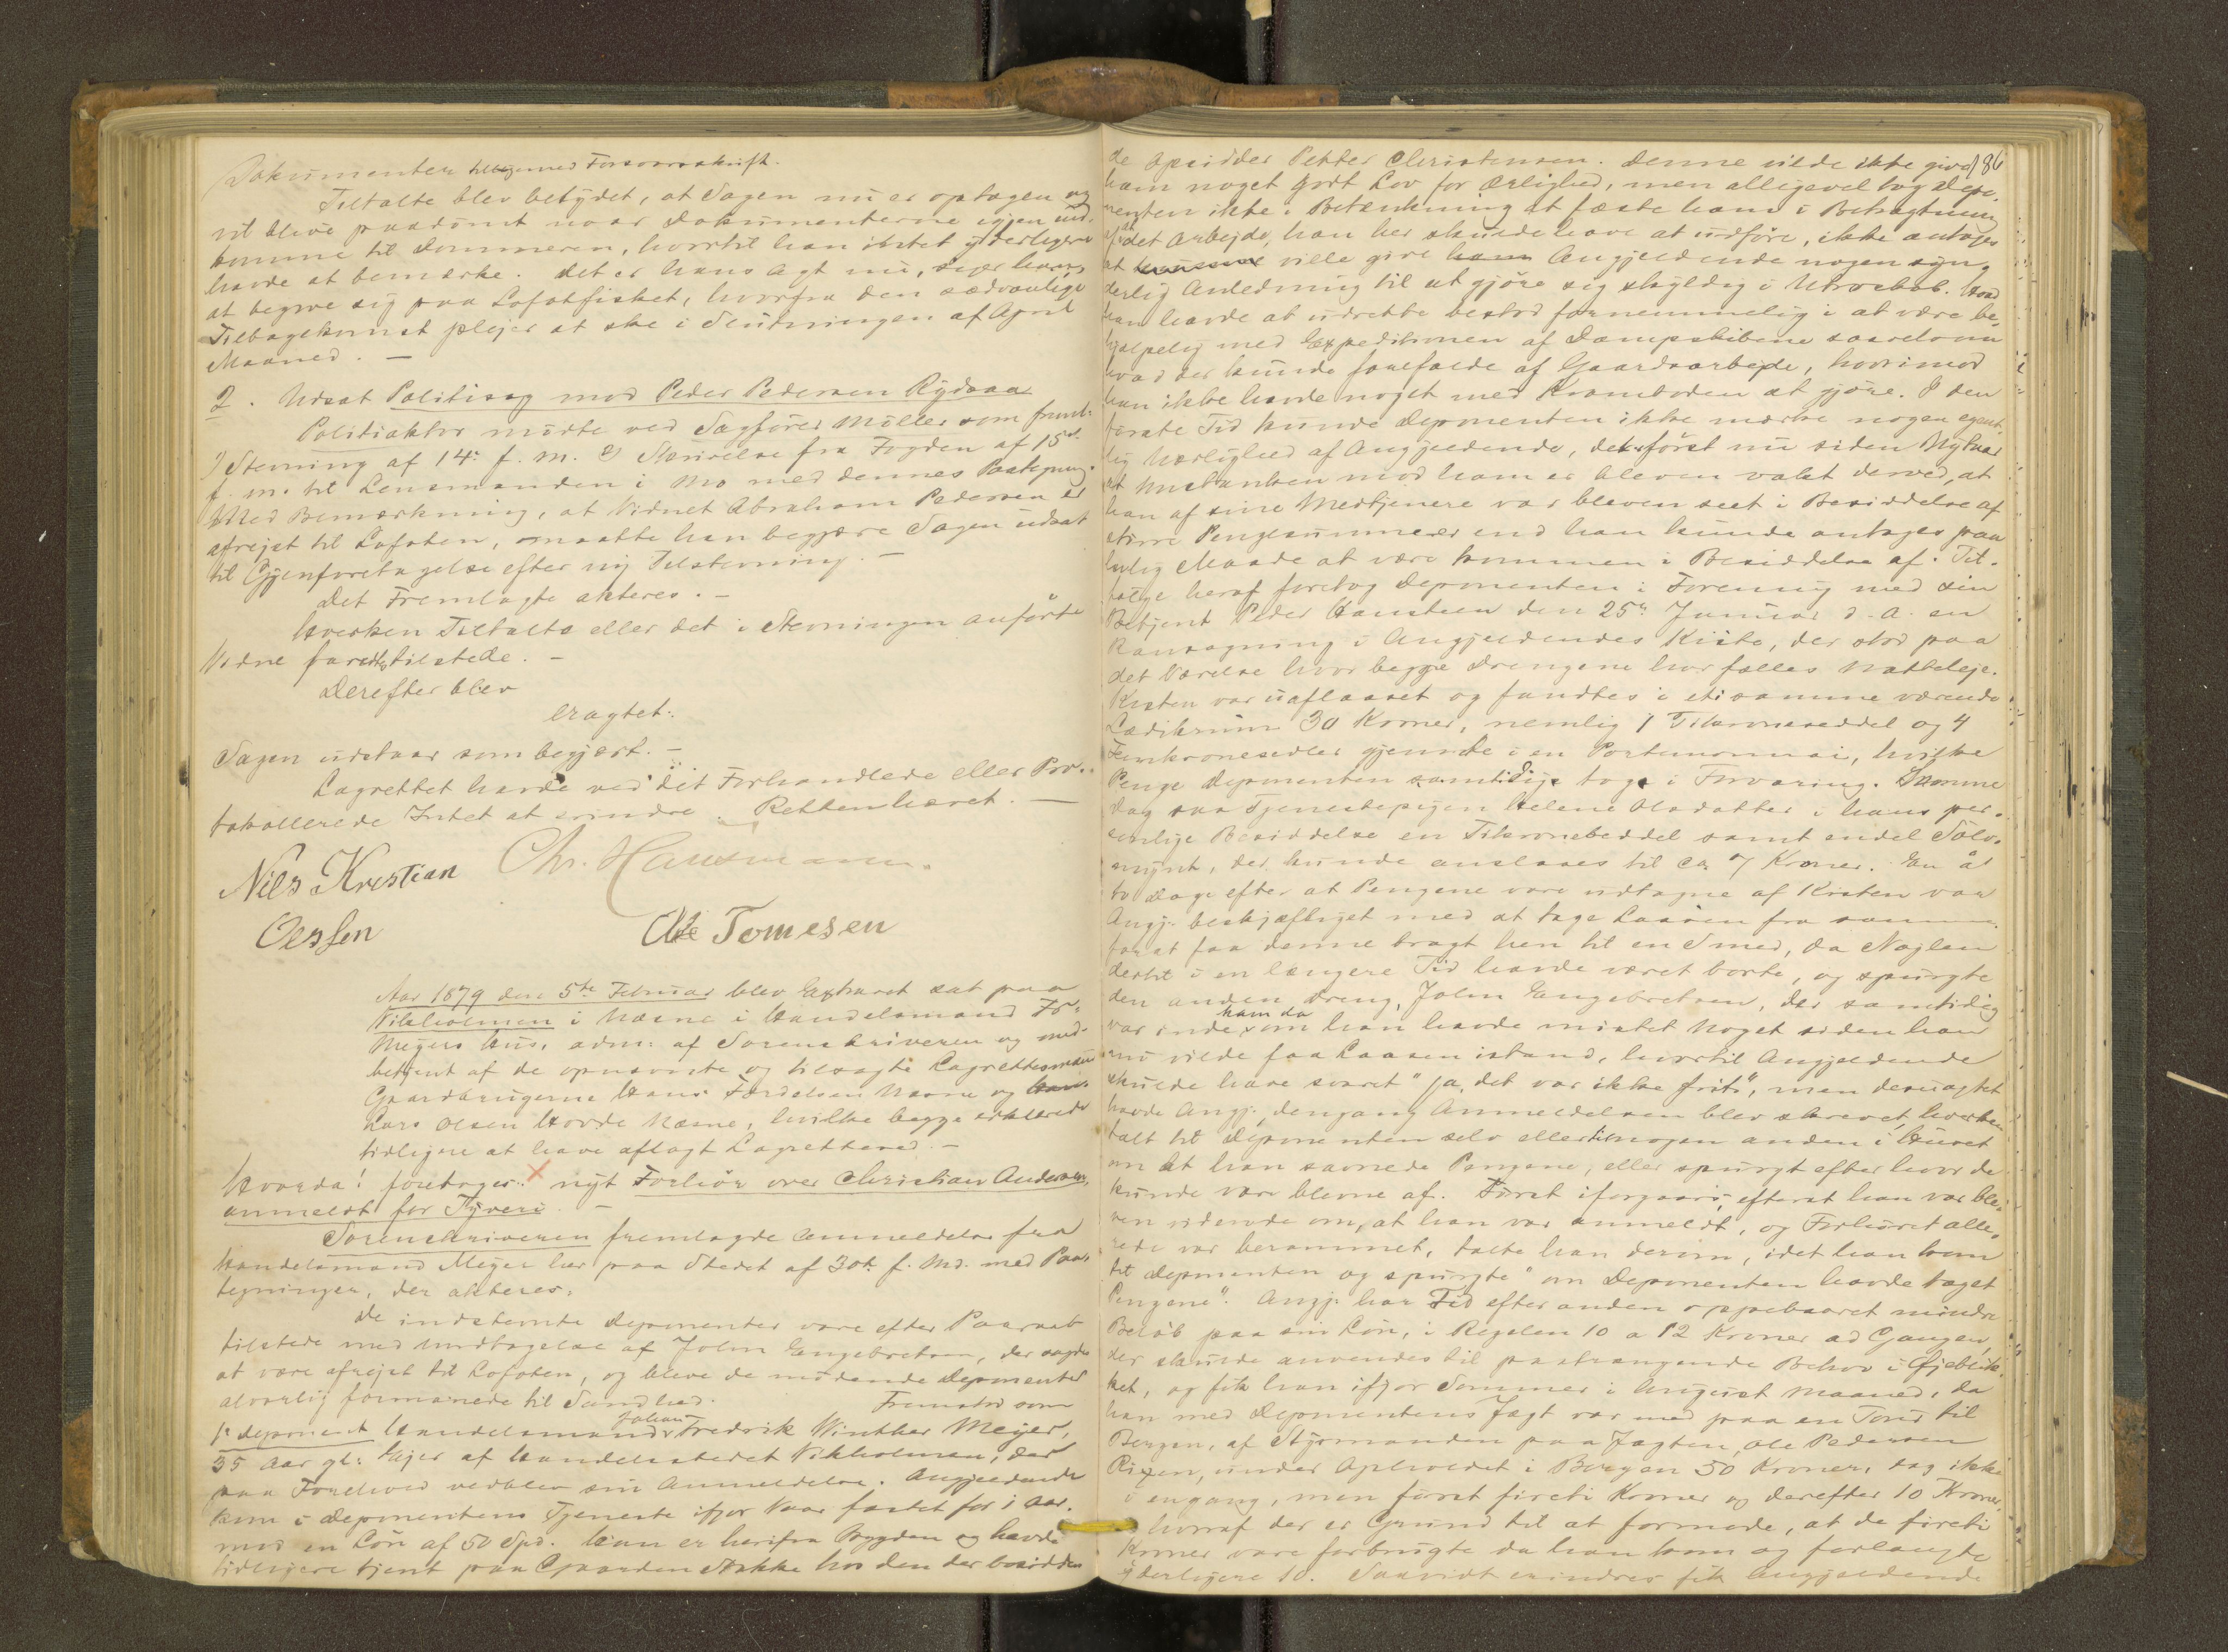 Dokumenter tilligemed Forsvarsskrift.
Tiltalte blev betydet, at Sagen nu er optagen og
vil blive paadömt naar Dokumenterne igjen ind-
komme til Dommeren, hvortil han intet yderligere
havde at bemærke. Det er hans Agt nu, siger han,
at begive sig paa Lofotfisket, hvorfra den sædvanlige
Tilbagekomst plejer at ske i Slutningen af April
Maaned. —
2. Udsat Politisag mod Peder Pedersen Rydaaa
Politiaktor mödte ved Sagförer Möller som freml:
1) Stevning af 14. f. m. 2) Skrivelse fra Fogden af 15d.
f. m. til Lensmanden i Mo med dennes Paategning.
Med Bemærkning, at Vidnet Abraham Pedersen er
afrejst til Lofoten, maatte han begjære Sagen udsat
til Gjenforetagelse efter ny Tilstevning. —
Det Fremlagte akteres. —
Hverken Tiltalte eller det i Stevningen anförte
Vidne fandtes tilstede. —
Derefter blev
eragtet:
Sagen udstaar som begjært. —
Lagrettet havde ved det Forhandlede eller Pro-
tokollerede Intet at erindre. Retten hævet. —
Nils Kristian Chr. Hausmann.
Oessen Ole Tomesen
Aar 1879 den 5te Februar blev Extraret sat paa
Vikholmen i Næsne i Handelsmand Fr.
Meyers Hus, adm: af Sorenskriveren og med-
betjent af de opnævnte og tilsagte Lagrettesmænd
Gaardbrugerne Hans Larsen Næsne og
Lars Olsen Hovde Næsne, hvilke begge erklærede
tidligere at have aflagt Lagretteed. —
Hvorda! foretages: nyt Forhör over Christian Andersen,
anmeldt for Tyveri. —
Sorenskriveren fremlagde Anmeldelse fra
Handelsmand Meyer her paa Stedet af 30te f. Md. med Paa-
tegninger, der akteres.
De indstevnte Deponenter vare efter Paaraab
tilstede med Undtagelse af John Engebretsen, der sagdes
at være afrejst til Lofoten, og bleve de mödende Deponenter
alvorlig formanede til Sandhed. Fremstod som
1e Deponent Handelsmand Johan Fredrik Winther Meyer,
35 Aar gl: Ejer af Handelsstedet Vikholmen, der
paa Forehold vedblev sin Anmeldelse. Angjeldende
kom i Deponentens Tjeneste ifjor Vaar fæstet for 1 Aar.
mod en Lön af 50 Spd. Han er herifra Bygden og havde
tidligere tjent paa Gaarden Stokke hos den der bosidden
186
de Opsidder Petter Christensen. Denne vilde ikke give
ham noget godt Lov for Ærlighed, men alligevel tog Depo-
nenten ikke i Betænkning at fæste ham i Betragtning
af at det Arbejde, han her skulde have at udföre, ikke antoges
at ville give Angjeldende nogen syn-
derlig Anledning til at gjöre sig skyldig i Utroskab. Hvad
han havde at udrette bestod fornemmelig i at være be-
hjælpelig med Expeditionen af Dampskibene saavelsom
hvad der kunde forefalde af Gaardsarbejde, hvorimod
han ikke havde noget med Kramboden at gjöre. I den
förste Tid kunde Deponenten ikke mærke nogen egent-
lig Uærlighed af Angjeldende, det er först nu siden Nytaar
at Mistanken mod ham er bleven vakt derved, at
han af sine Medtjenere var bleven seet i Besiddelse af
större Pengesummer end han kunde antages paa
lovlig Maade at være kommen i Besiddelse af. Til-
fölge heraf foretog Deponenten i Forening med sin
Betjent Peder Hansteen den 25de Januar d. A. en
Ransagning i Angjeldendes Kiste, der stod paa
det Værelse hvor begge Drengene har fælles Natteleje.
Kisten var uaflaaset og fandtes i et i samme værende
Lædikrum 30 Kroner, nemlig 1 Tikroneseddel og 4
Femkronesedler gjemte i en Portemonnai, hvilke
Penge Deponenten samtidig tog i Forvaring. Samme
Dag saa Tjenestepigen Helene Olsdatter i hans per-
sonlige Besiddelse en Tikroneseddel samt endel Sölv-
mynt, der kunde anslaaes til ca 7 Kroner. En à
to Dage efter at Pengene vare udtagne af Kisten var
Angj: beskjæftiget med at tage Laasen fra samme
for at faa denne bragt hen til en Smed, da Nöglen
dertil i en længere Tid havde været borte, og spurgte
den anden Dreng, John Engebretsen, der samtidig
var inde ham da om han havde mistet Noget siden han
nu vilde faa Laasen istand, hvortil Angjeldende
skulde have svaret "Ja, det var ikke frit", men desuagtet
havde Angj:, dengang Anmeldelsen blev skrevet, hverken
talt til Deponenten selv eller til nogen anden i Huset
om at han savnede Pengene, eller spurgt efter hvor de
kunde være blevne af. Först iforgaars, efterat han var ble-
ven vidende om, at han var anmeldt, og Forhöret alle-
rede var berammet, talte han derom, idet han kom
til Deponenten og spurgte "om Deponenten havde taget
Pengene". Angj: har Tid efter anden oppebaaret mindre
Belöb paa sin Lön, i Regelen 10 a 12 Kroner ad Gangen,
der skulde anvendes til paatrængende Behov i Öjeblik-
ket, og fik han ifjor Sommer i August Maaned, da
han med Deponentens Jægt var med paa en Tour til
Bergen, af Styrmanden paa Jægten, Ole Pedersen
, under Opholdet i Bergen 50 Kroner, dog ikke
i engang, men först fireti Kroner og derefter 10 Kroner,
hvoraf der er Grund til at formode, at de fireti
Kroner vare forbrugte da han kom og forlangte
yderligere 10. Saavidt erindres fik Angjeldende